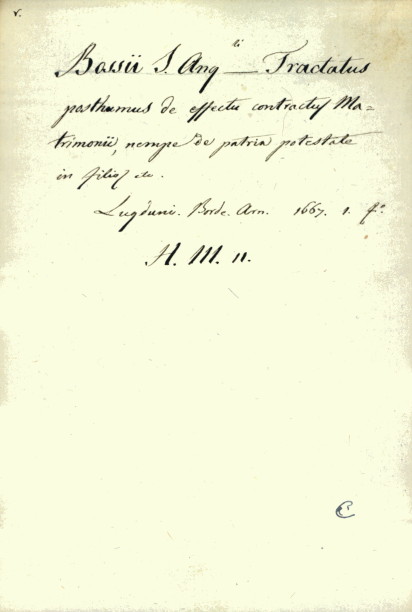 v.
Bassii S. Ang_li_ Tractatus
posthumus de effectu contractus Ma=
trimonii, nempe de patria potestate
in filios etc.
Lugduni. Borde. Arn. 1667. 1. fo.
H. M. 11.
C